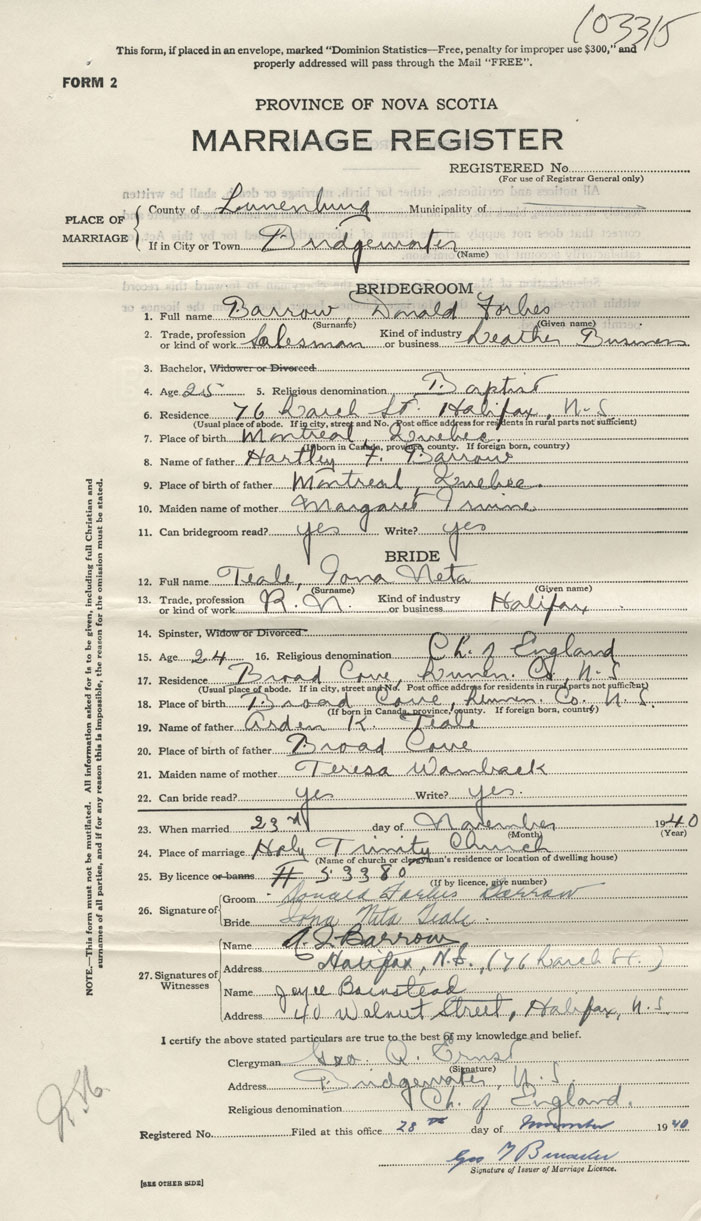 103315
This form, if placed in an envelope, marked "Dominion Statistics—Free, penalty for improper use $300," and
properly addressed will pass through the Mail "FREE".
FORM 2
PROVINCE OF NOVA SCOTIA
MARRIAGE REGISTER
REGISTERED No.
(For use of Registrar General only)
PLACE OF MARRIAGE
County of Lunenburg Municipality of
If in City or Town Bridgewater
(Name)
BRIDEGROOM
1. Full name Barrow, Donald Forbes
(Surname) (Given name)
2. Trade, profession or kind of work Salesman Kind of industry or business Leather Business
3. Bachelor, Widower or Divorced
4. Age 25 5. Religious denomination Baptist
6. Residence 76 Larch St. Halifax, N-S
(Usual place of abode. If in city, street and No. Post office address for residents in rural parts not sufficient)
7. Place of birth Montreal, Quebec.
(If born in Canada, province, county. If foreign born, country)
8. Name of father Hartley F. Barrow
9. Place of birth of father Montreal, Quebec.
10. Maiden name of mother Margaret Irvine
11. Can bridegroom read? yes Write? yes
BRIDE
12. Full name Teale, Iona Neta
(Surname) (Given name)
13. Trade, profession or kind of work R.N. Kind of industry or business Halifax
14. Spinster, Widow or Divorced
15. Age 24 16. Religious denomination Ch. of England
17. Residence Broad Cove, Lunen. Co, N-S
(Usual place of abode. If in city, street and No. Post office address for residents in rural parts not sufficient)
18. Place of birth Broad Cove, Lunen. Co. N.S.
(If born in Canada, province, county. If foreign born, country)
19. Name of father Arden K. Teale
20. Place of birth of father Broad Cove
21. Maiden name of mother Teresa Wamback
22. Can bride read? yes Write? yes.
23. When married 23rd day of November 1940
(Month) (Year)
24. Place of marriage Holy Trinity Church
(Name of church or clergyman's residence or location of dwelling house)
25. By licence or banns # 53380
(If by licence, give number)
26. Signature of
Groom Donald Forbes Barrow
Bride Iona Neta Teale.
27. Signatures of Witnesses
Name Barrow
Address Halifax, N.S., (76 Larch St.)
Name Joyce Bainstead
Address 40 Walnut Street, Halifax, N.S.
I certify the above stated particulars are true to the best of my knowledge and belief.
Clergyman Geo. Q. Ernst
(Signature)
Address Bridgewater, N.S.
Religious denomination Ch. of England.
Registered No. Filed at this office 28th day of November 1940
Geo
Signature of Issuer of Marriage Licence.
[SEE OTHER SIDE]
NOTE.—This form must not be mutilated. All information asked for is to be given, including full Christian and
surnames of all parties, and if for any reason this is impossible, the reason for the omission must be stated.